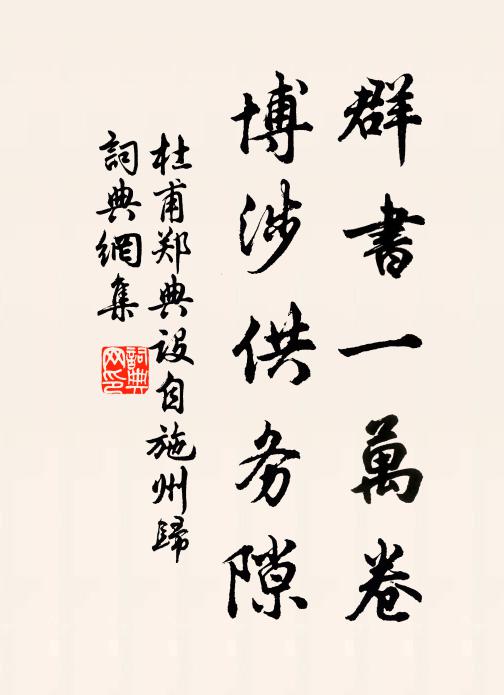 群書一萬卷
博涉供务隙
杜甫郑典设自施州歸
詞典網集
詞典网印